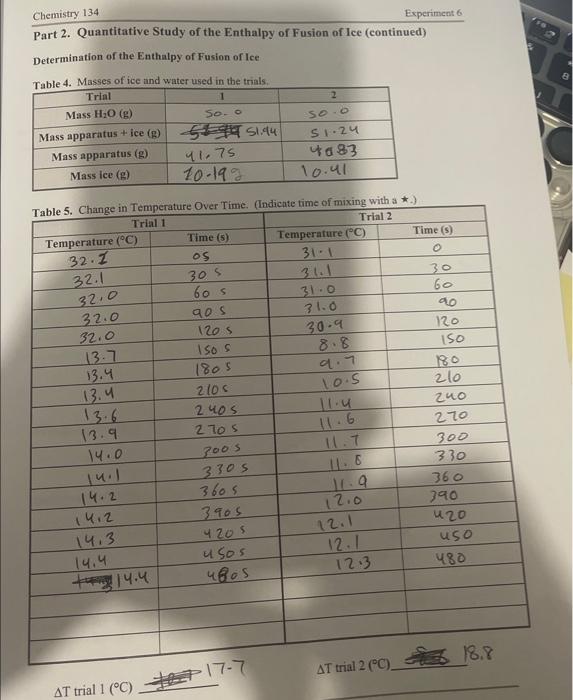 Chemistry 134 Experiment 6
Part 2. Quantitative Study of the Enthalpy of Fusion of Ice (continued)
Determination of the Enthalpy of Fusion of Ice
Table 4. Masses of ice and water used in the trials.
Trial 1 2
Mass H₂O (g) 50.0 50.0
Mass apparatus + ice (g) 51.94 51.24
Mass apparatus (g) 41.75 4083
Mass ice (g) 10.19g 10.41
Table 5. Change in Temperature Over Time. (Indicate time of mixing with a ★.)
Trial 1 Trial 2
Temperature (°C) Time (s) Temperature (°C) Time (s)
32.1 0s 31.1 0
32.1 30 s 31.1 30
32.0 60 s 31.0 60
32.0 90 s 31.0 90
32.0 120 s 30.9 120
13.7 150 s 8.8 150
13.4 180 s 9.7 180
13.4 210 s 10.5 210
13.6 240 s 11.4 240
13.9 270 s 11.6 270
14.0 300 s 11.7 300
14.1 330 s 11.8 330
14.2 360 s 11.9 360
14.2 390 s 12.0 390
14.3 420 s 12.1 420
14.4 450 s 12.1 450
14.4 480 s 12.3 480
ΔT trial 1 (°C) 17.7 ΔT trial 2 (°C) 18.8